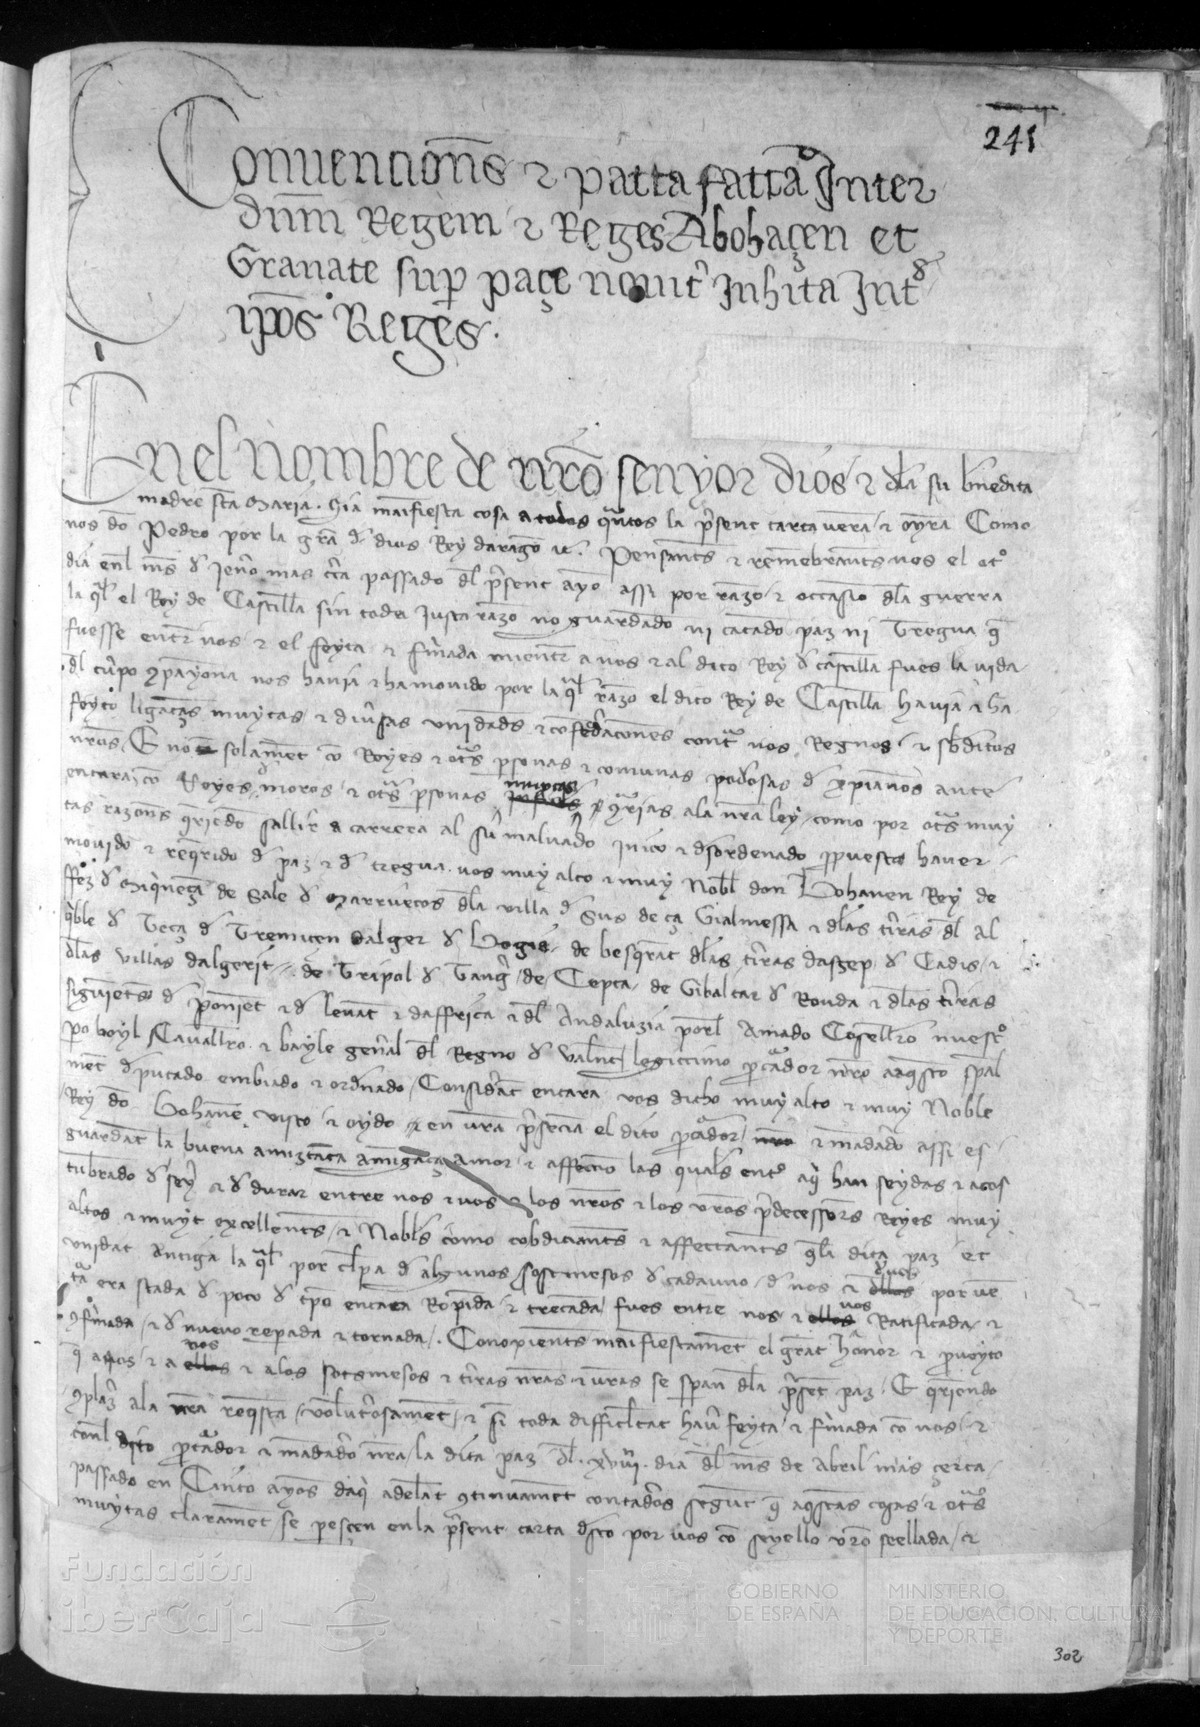 241
Conuencions ⁊ patta fatta Inter
dnm Regem ⁊ Reges Abohaçen et
Granate sup paçe nouit Inhita Int
ipos Reges.
En el nombre de nro senyor dios ⁊ dla su bnedita
madre sta Maria. Sia maifiesta cosa a todos quatos la psent carta vera ⁊ oyra Como
nos do Pedro por la gra d dios Rey darago ⁊c. Pensants ⁊ remebrants nos el
dia enl mes d jenero mas cca passado dl psent ayo assi por razo ⁊ occasio dla guerra
la ql el Rey de Castiella sin toda justa razo no guardado ni catado paz ni Tregua q
fuesse entr nos ⁊ el feyta ⁊ fmada mientr a nos ⁊ al dito Rey d castiella fues la vida
dl cupo nos havia ⁊ ha mouido por la ql razo el dito Rey de Castiella havia ⁊ ha
feyto ligaças muytas ⁊ diusas vnidads ⁊ cofedacones cont nos Regnos ⁊ sbditos
nros, E no solamet co Reyes ⁊ ots psonas ⁊ comunas podosas d xpianos ante
encara co Reyes moros ⁊ ots psonas muytas qrias ala nra ley como por ots muy
tas razons qriedo sallir a carrera al su maluado inico ⁊ dsordenado ppuesto hauer
mouido ⁊ reqrido d paz ⁊ d tregua. vos muy alto ⁊ muy Nobl don Bohanen Rey de
Fez d Miqneça de Sale d Marruecos dla villa d Sus de ça Gialmessa ⁊ dlas tiras dl al
qble d Teça d Tremicen dalger d Bogia de besqrat dlas tiras dafzep d Cadis ⁊
dlas villas dalgerit de Tripol d Tang de Cepta de Gibaltar d Ronda ⁊ dlas tiras
siguients d poniet ⁊ d leuat ⁊ daffrica ⁊ dl Andaluzia porl Amado Cosellro nuest
po boyl Cauallro ⁊ bayle genal dl Regno d Valnc legittimo pcador nro aaqsto spal
met dputado embiado ⁊ ordnado Considat encara vos dicho muy alto ⁊ muy Noble
Rey do Bohane visto ⁊ oydo en vra psecia el dito pcador ⁊ madado assi es
guardat la buena amiztaça amigaça amor ⁊ affeccio las quals ent aq han seydas ⁊ acos
tubrado d sey ⁊ d durar entre nos ⁊ vos ⁊ los nros ⁊ los vros pdecessors Reyes muy
altos ⁊ muyt excellents ⁊ Nobls como cobdiciants ⁊ affectants qla dita paz et
vnidat Antiga la ql por clpa d algunos sosmesos d cadauno d nos ⁊ por ue
ta era stada d poco d tpo encara Ropida ⁊ trecada fues entre nos ⁊ vos Ratificada ⁊
fmada ⁊ d nueuo repada ⁊ tornada. Conoxients maifiestamet el grat honor ⁊ pueyto
q a nos ⁊ a vos ⁊ alos sotsmesos ⁊ tiras nras ⁊ uras se span dla pset paz E qriendo
plaz ala nra reqsta volutosamet ⁊ si toda difficltat hau feyta ⁊ fmada co nos ⁊
conl dito pcador ⁊ madado nra la dita paz dl xviii dia dl mes de Abril mas çerca
passado en Cinco ayos daq adelat tinuamet contados segut q aqstas cosas ⁊ ots
muytas claramet se pescen en la psent carta dsto por uos co seyello uro seellada ⁊
302
Fundación
iberCaja
GOBIERNO
DE ESPAÑA
MINISTERIO
DE EDUCACIÓN, CULTURA
Y DEPORTE